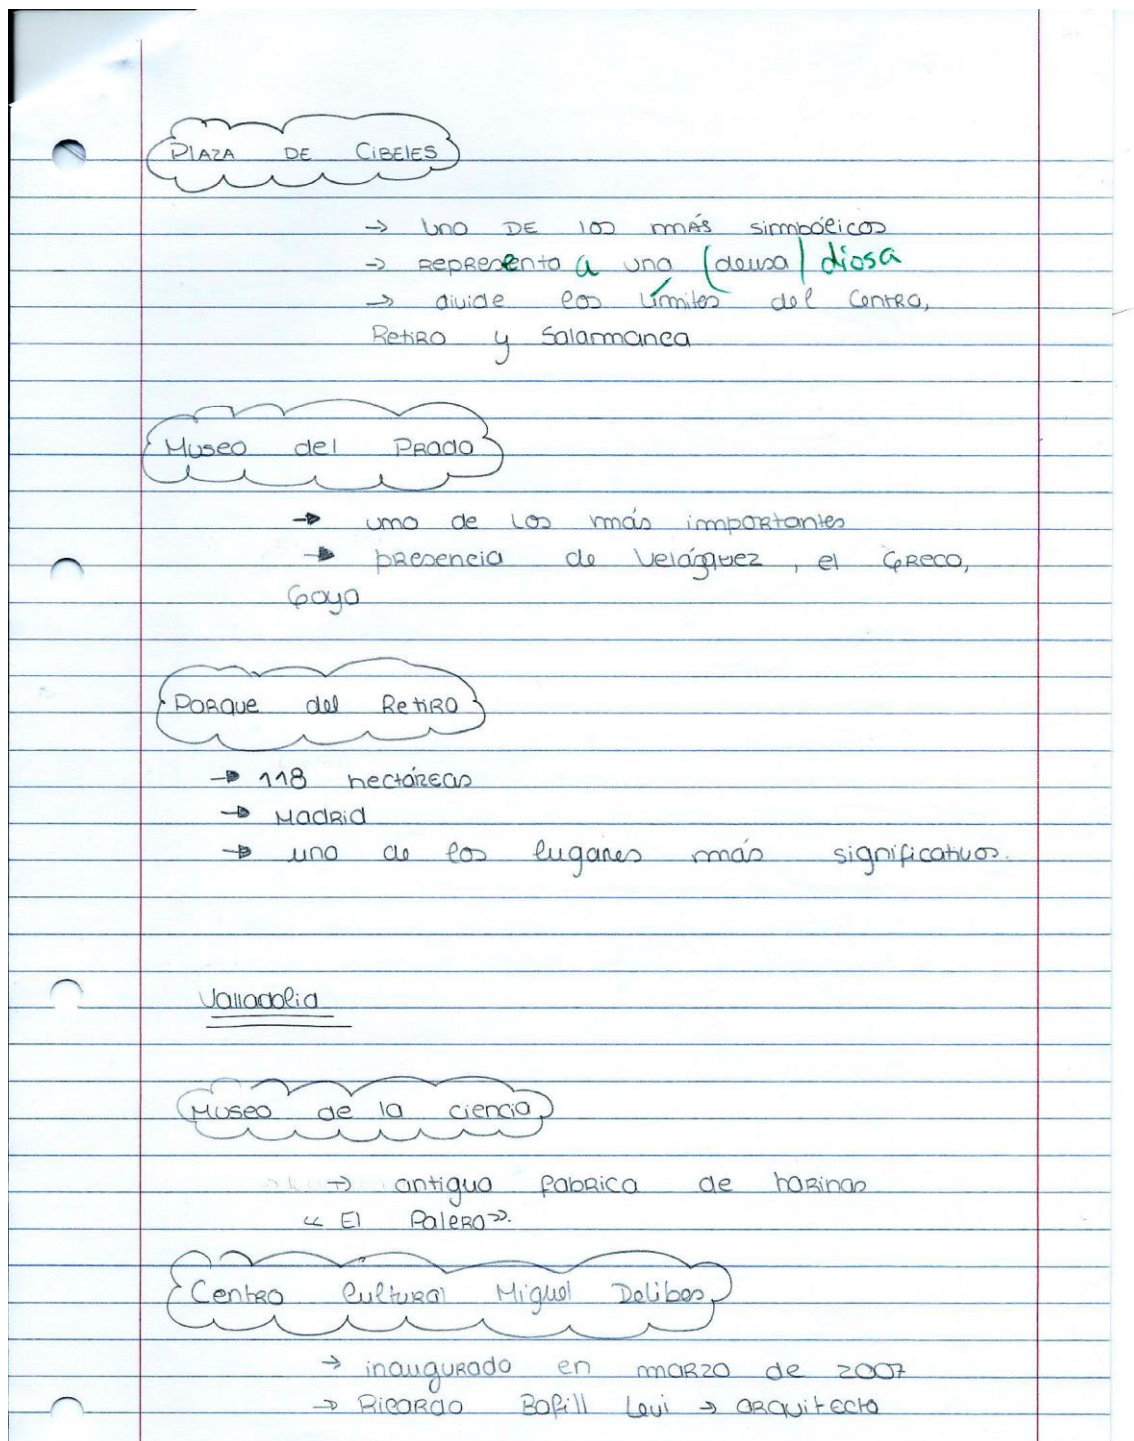 PLAZA DE CIBELES
→ uno DE los más simbólicos
→ representa a una (deusa) diosa
→ divide los límites del Centro,
Retiro y Salamanca
Museo del Prado
→ uno de los más importantes
→ presencia de Velázquez, el Greco,
Goya
Parque del Retiro
→ 118 hectáreas
→ Madrid
→ uno de los lugares más significativos.
Valladolid
Museo de la ciencia
→ antigua fabrica de harinas
« El Palero».
Centro Cultural Miguel Delibes
→ inaugurado en marzo de 2007
→ Ricardo Bofill Levi → arquitecto